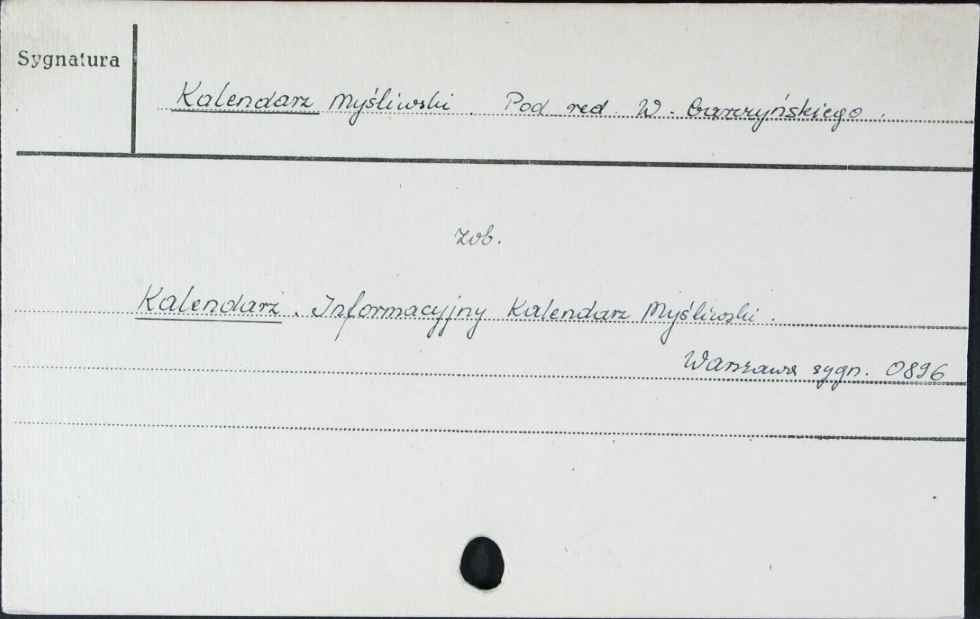 Sygnatura
Kalendarz Myśliwski. Pod red W.
zob.
Kalendarz. Informacyjny Kalendarz Myśliwski.
Warszawa sygn. 0896